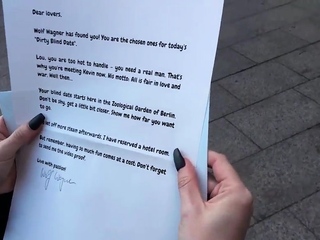 Dear lovers.
Wolf Wagner has found you! You are the chosen ones for today's
"Dirty Blind Date".
Lou, you are too hot to handle - you need a real man. That's
why you're meeting Kevin now. His motto: All is fair in love and
war. Well then...
Your blind date starts here in the Zoological Garden of Berlin.
Don't be shy, get a little bit closer. Show me how far you want
to go.
let off more steam afterwards, I have reserved a hotel room
But remember, having so much fun comes at a cost: Don't forget
to send me the video proof.
Live with passion!
Wolf Wagner